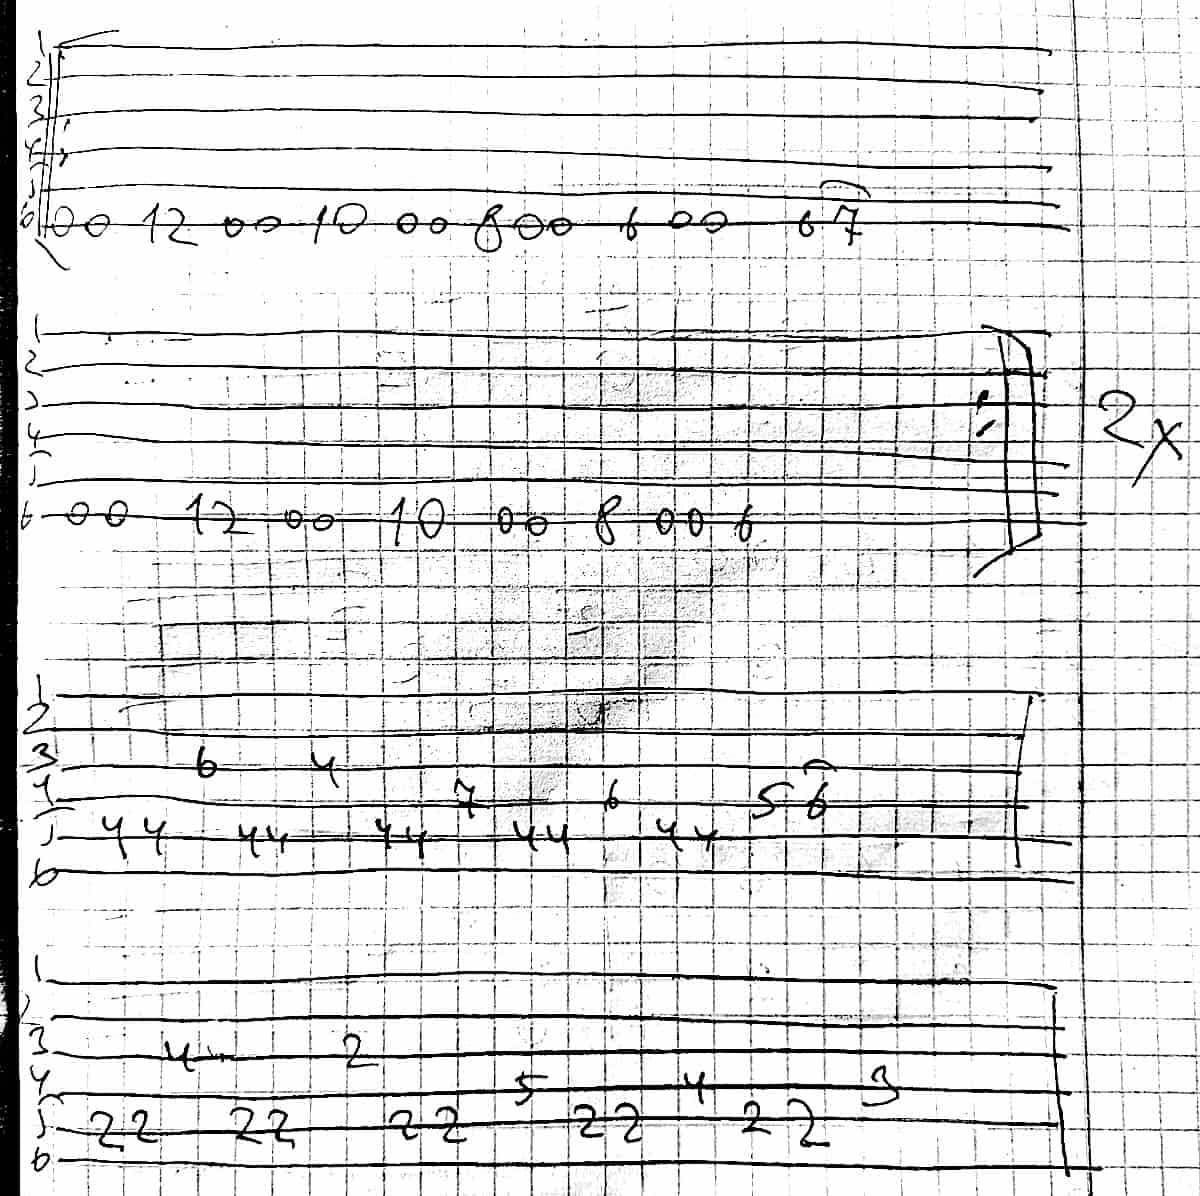 1
2
3
4
5
6 00 12 00 10 00 8 00 6 00 6 7
1
2
3
4
5
6 00 12 00 10 00 8 00 6
2x
1
2
3 6 4
4 7 6 5 6
5 44 44 44 44 44
6
1
2
3 4 2
4 5 4 3
5 22 22 22 22 22
6